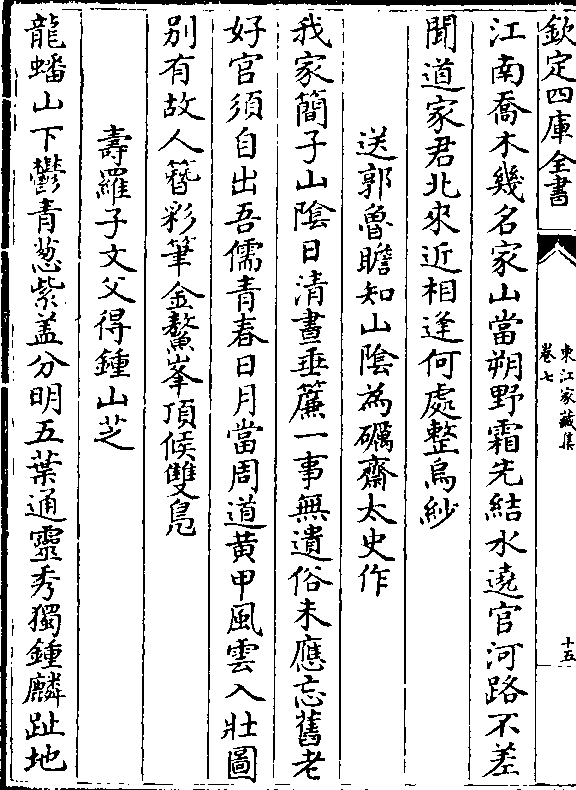 欽定四庫全書
東江家藏集
卷七
十五
江南喬木幾名家山當朔野霜先結水遶官河路不差
聞道家君北來近相逢何處整烏紗
送郭魯瞻知山陰為礪齋太史作
我家簡子山陰日清晝垂簾一事無遺俗未應忘舊老
好官須自出吾儒青春日月當周道黄甲風雲入壯圖
别有故人簮彩筆金鰲峯頂候雙鳧
壽羅子文父得鍾山芝
龍蟠山下鬱青葱紫盖分明五葉通靈秀獨鍾麟趾地